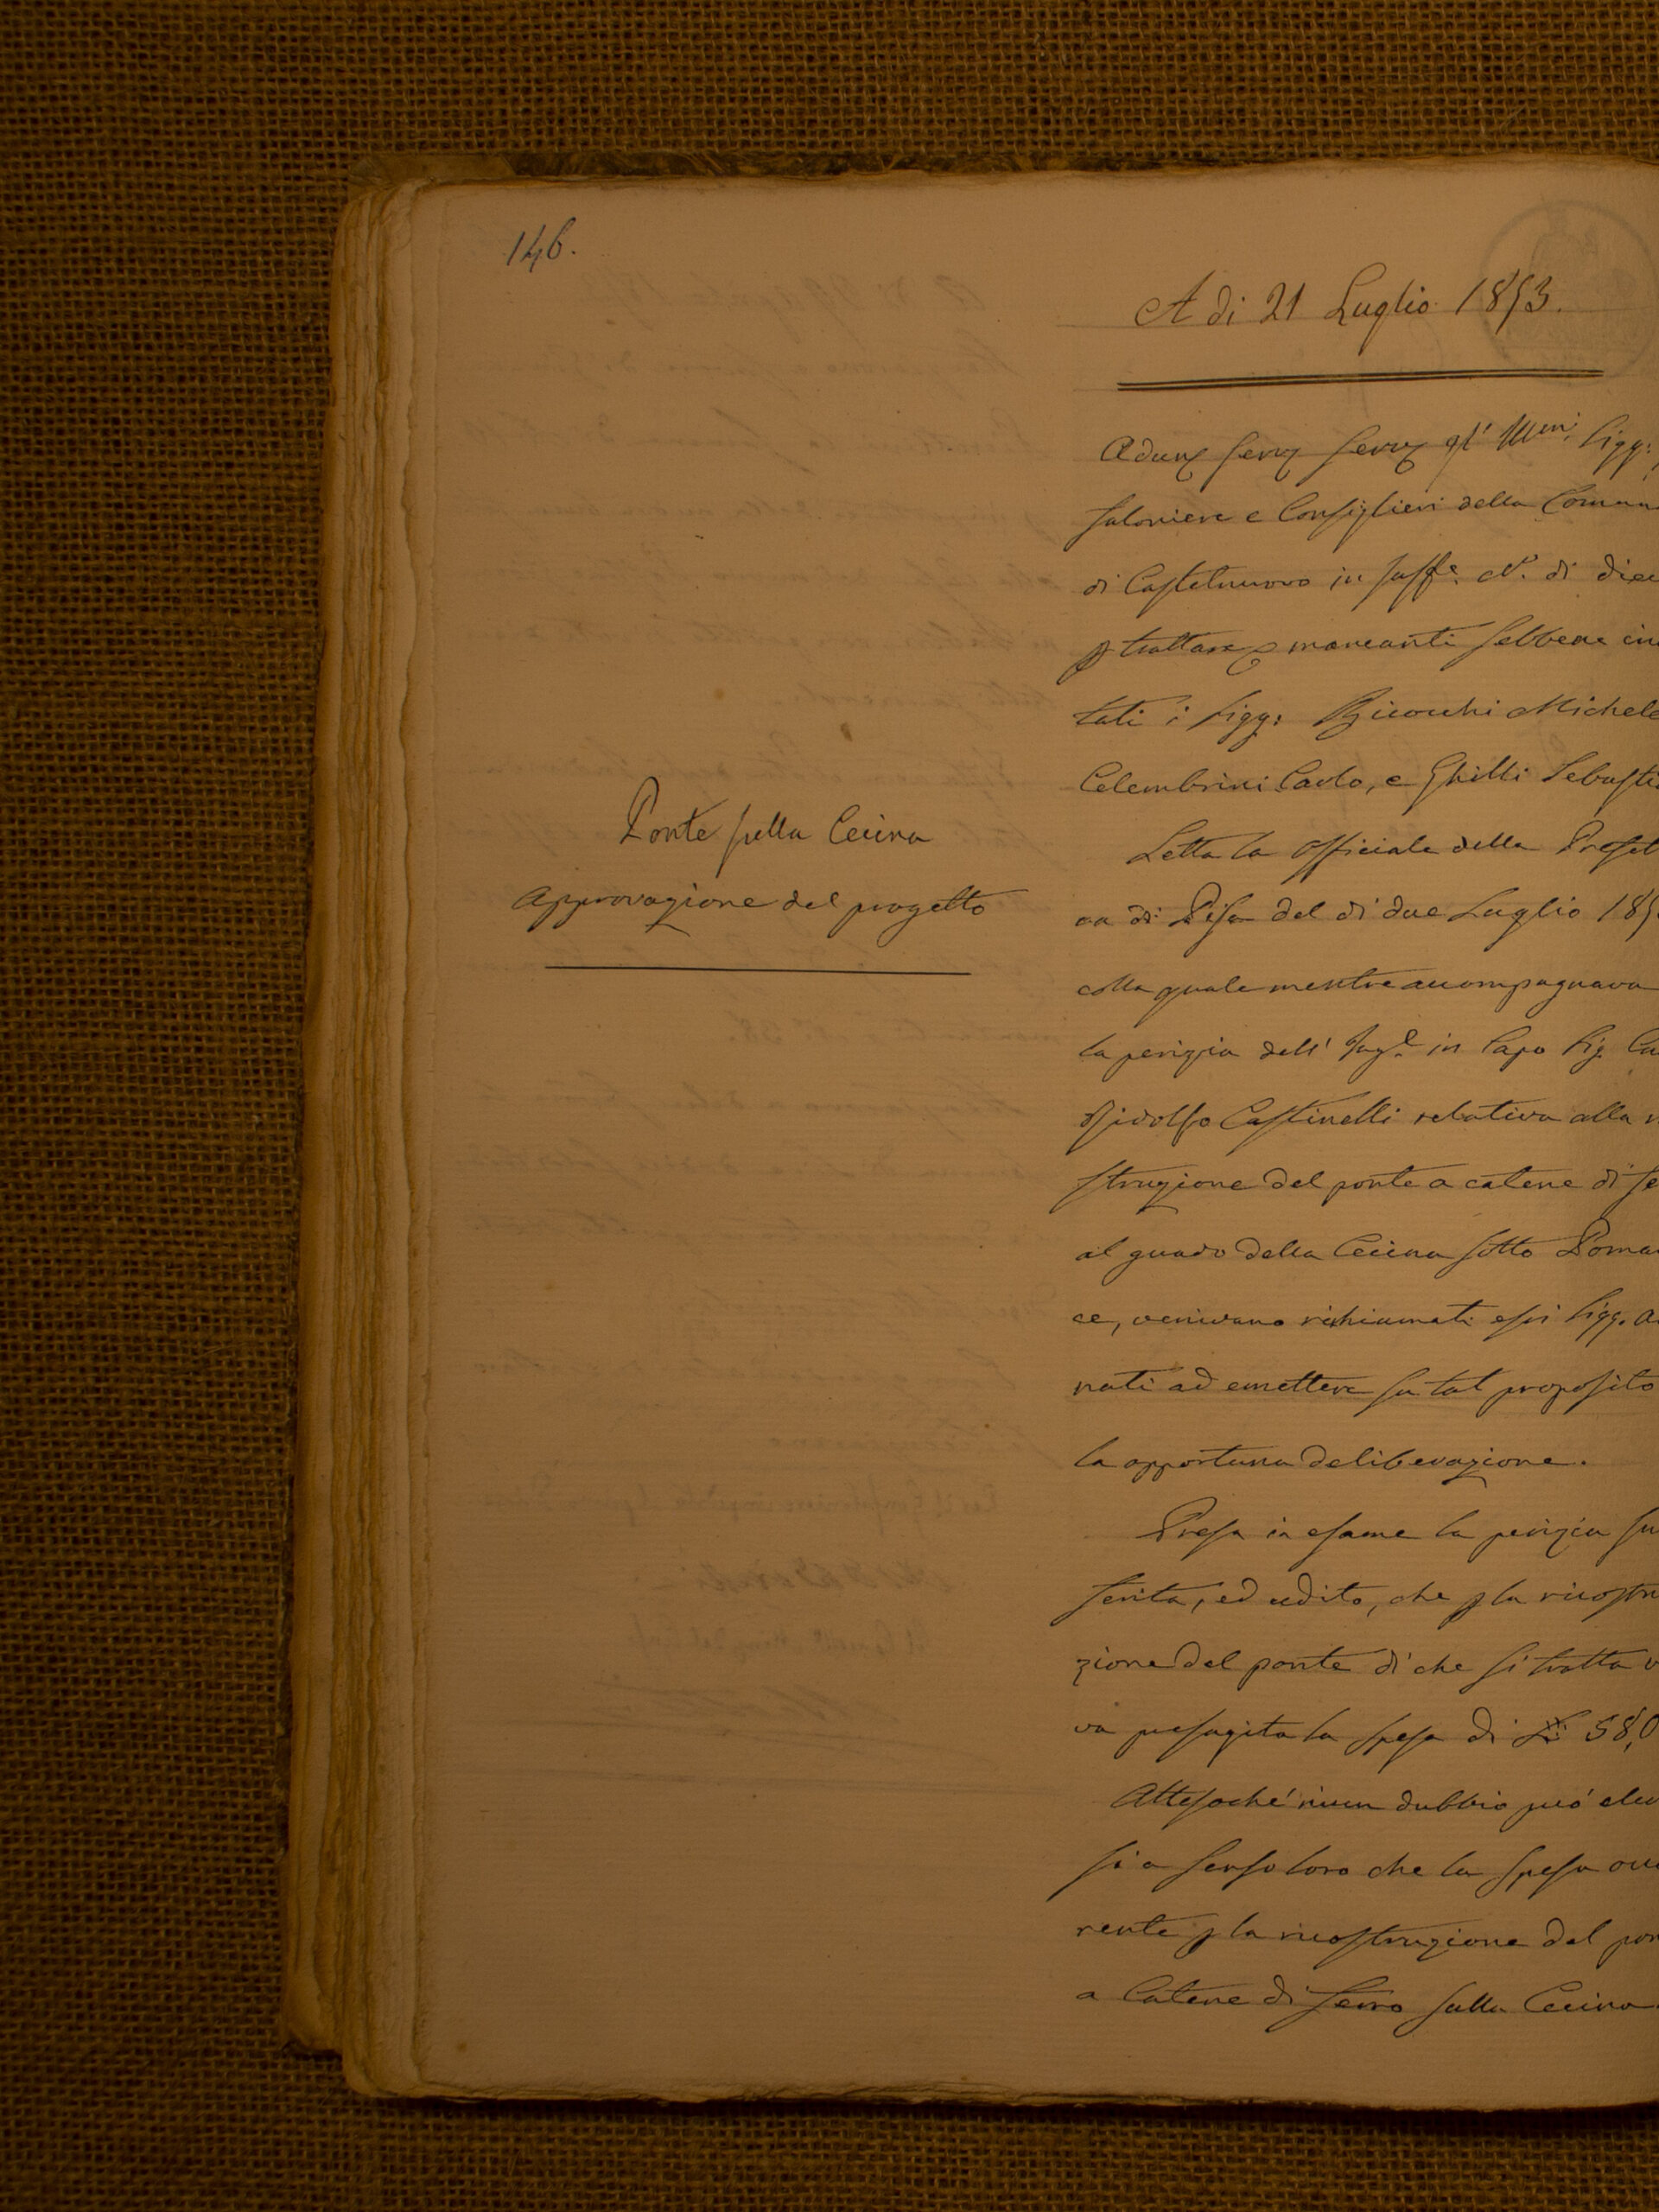 146.
A dì 21 Luglio 1853.
Adunj Servj Servj gl' Illmi Sigg:
faloniere e Consiglieri della Comun
di Castelnuovo in suffe N. di diec
p trattare mancanti sebbene in
tati i Sigg: Bicocchi Michele
Celembrini Carlo, e Ghilli Sebasti
Ponte sulla Cecina
Approvazione del progetto
Letta la Officiale della Prefet
ra di Pisa del dì due Luglio 185
colla quale mentre accompagnava
la perizia dell' Inge in Capo Sig. Ca
Ridolfo Castinelli relativa alla r
struzione del ponte a catene di fe
al guado della Cecina sotto Poma
ce, venivano richiamati essi Sigg. A
nati ad emettere su tal proposito
la opportuna deliberazione.
Presa in esame la perizia su
ferita, ed udito, che p la ricostru
zione del ponte di che si tratta v
va presagita la spesa di 58,0
Attesoché niun dubbio può elev
si a senso loro che la spesa occ
rente p la ricostruzione del pon
a Catene di ferro sulla Cecina